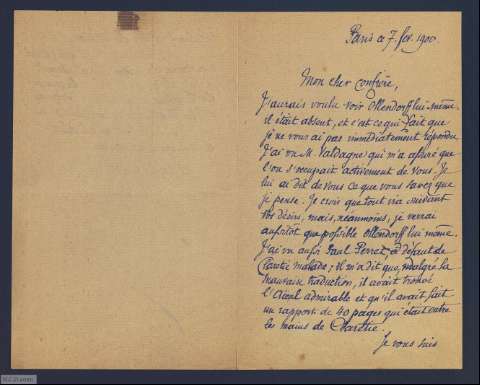 Paris ce 7. fev. 1900.
Mon cher confrère,
J'aurais voulu voir Ollendorff lui-même.
il était absent, et c'est ce qui fait que
je ne vous ai pas immédiatement répondu.
J'ai vu M. Valdagne qui m'a assuré que
l'on s'occupait activement de vous. Je
lui ai dit de vous ce que vous savez que
je pense. Je crois que tout ira suivant
vos désirs, mais, néanmoins, je verrai
aussitôt que possible Ollendorff lui même.
J'ai vu aussi Paul Perret, à défaut de
malade; il m'a dit que, malgré la
mauvaise traduction, il avait trouvé
admirable et qu'il avait fait
un rapport de 40 pages qui était entre
les mains de
Je vous suis